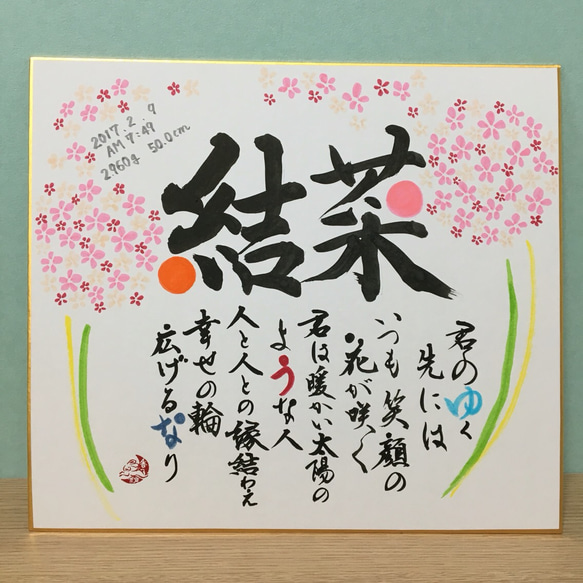 2017.2.9
AM 7:49
2960g 50.0cm
結菜
君のゆく
先には
いつも笑顔の
花が咲く
君は暖かい太陽の
ような人
人と人との縁結わえ
幸せの輪
広げるなり